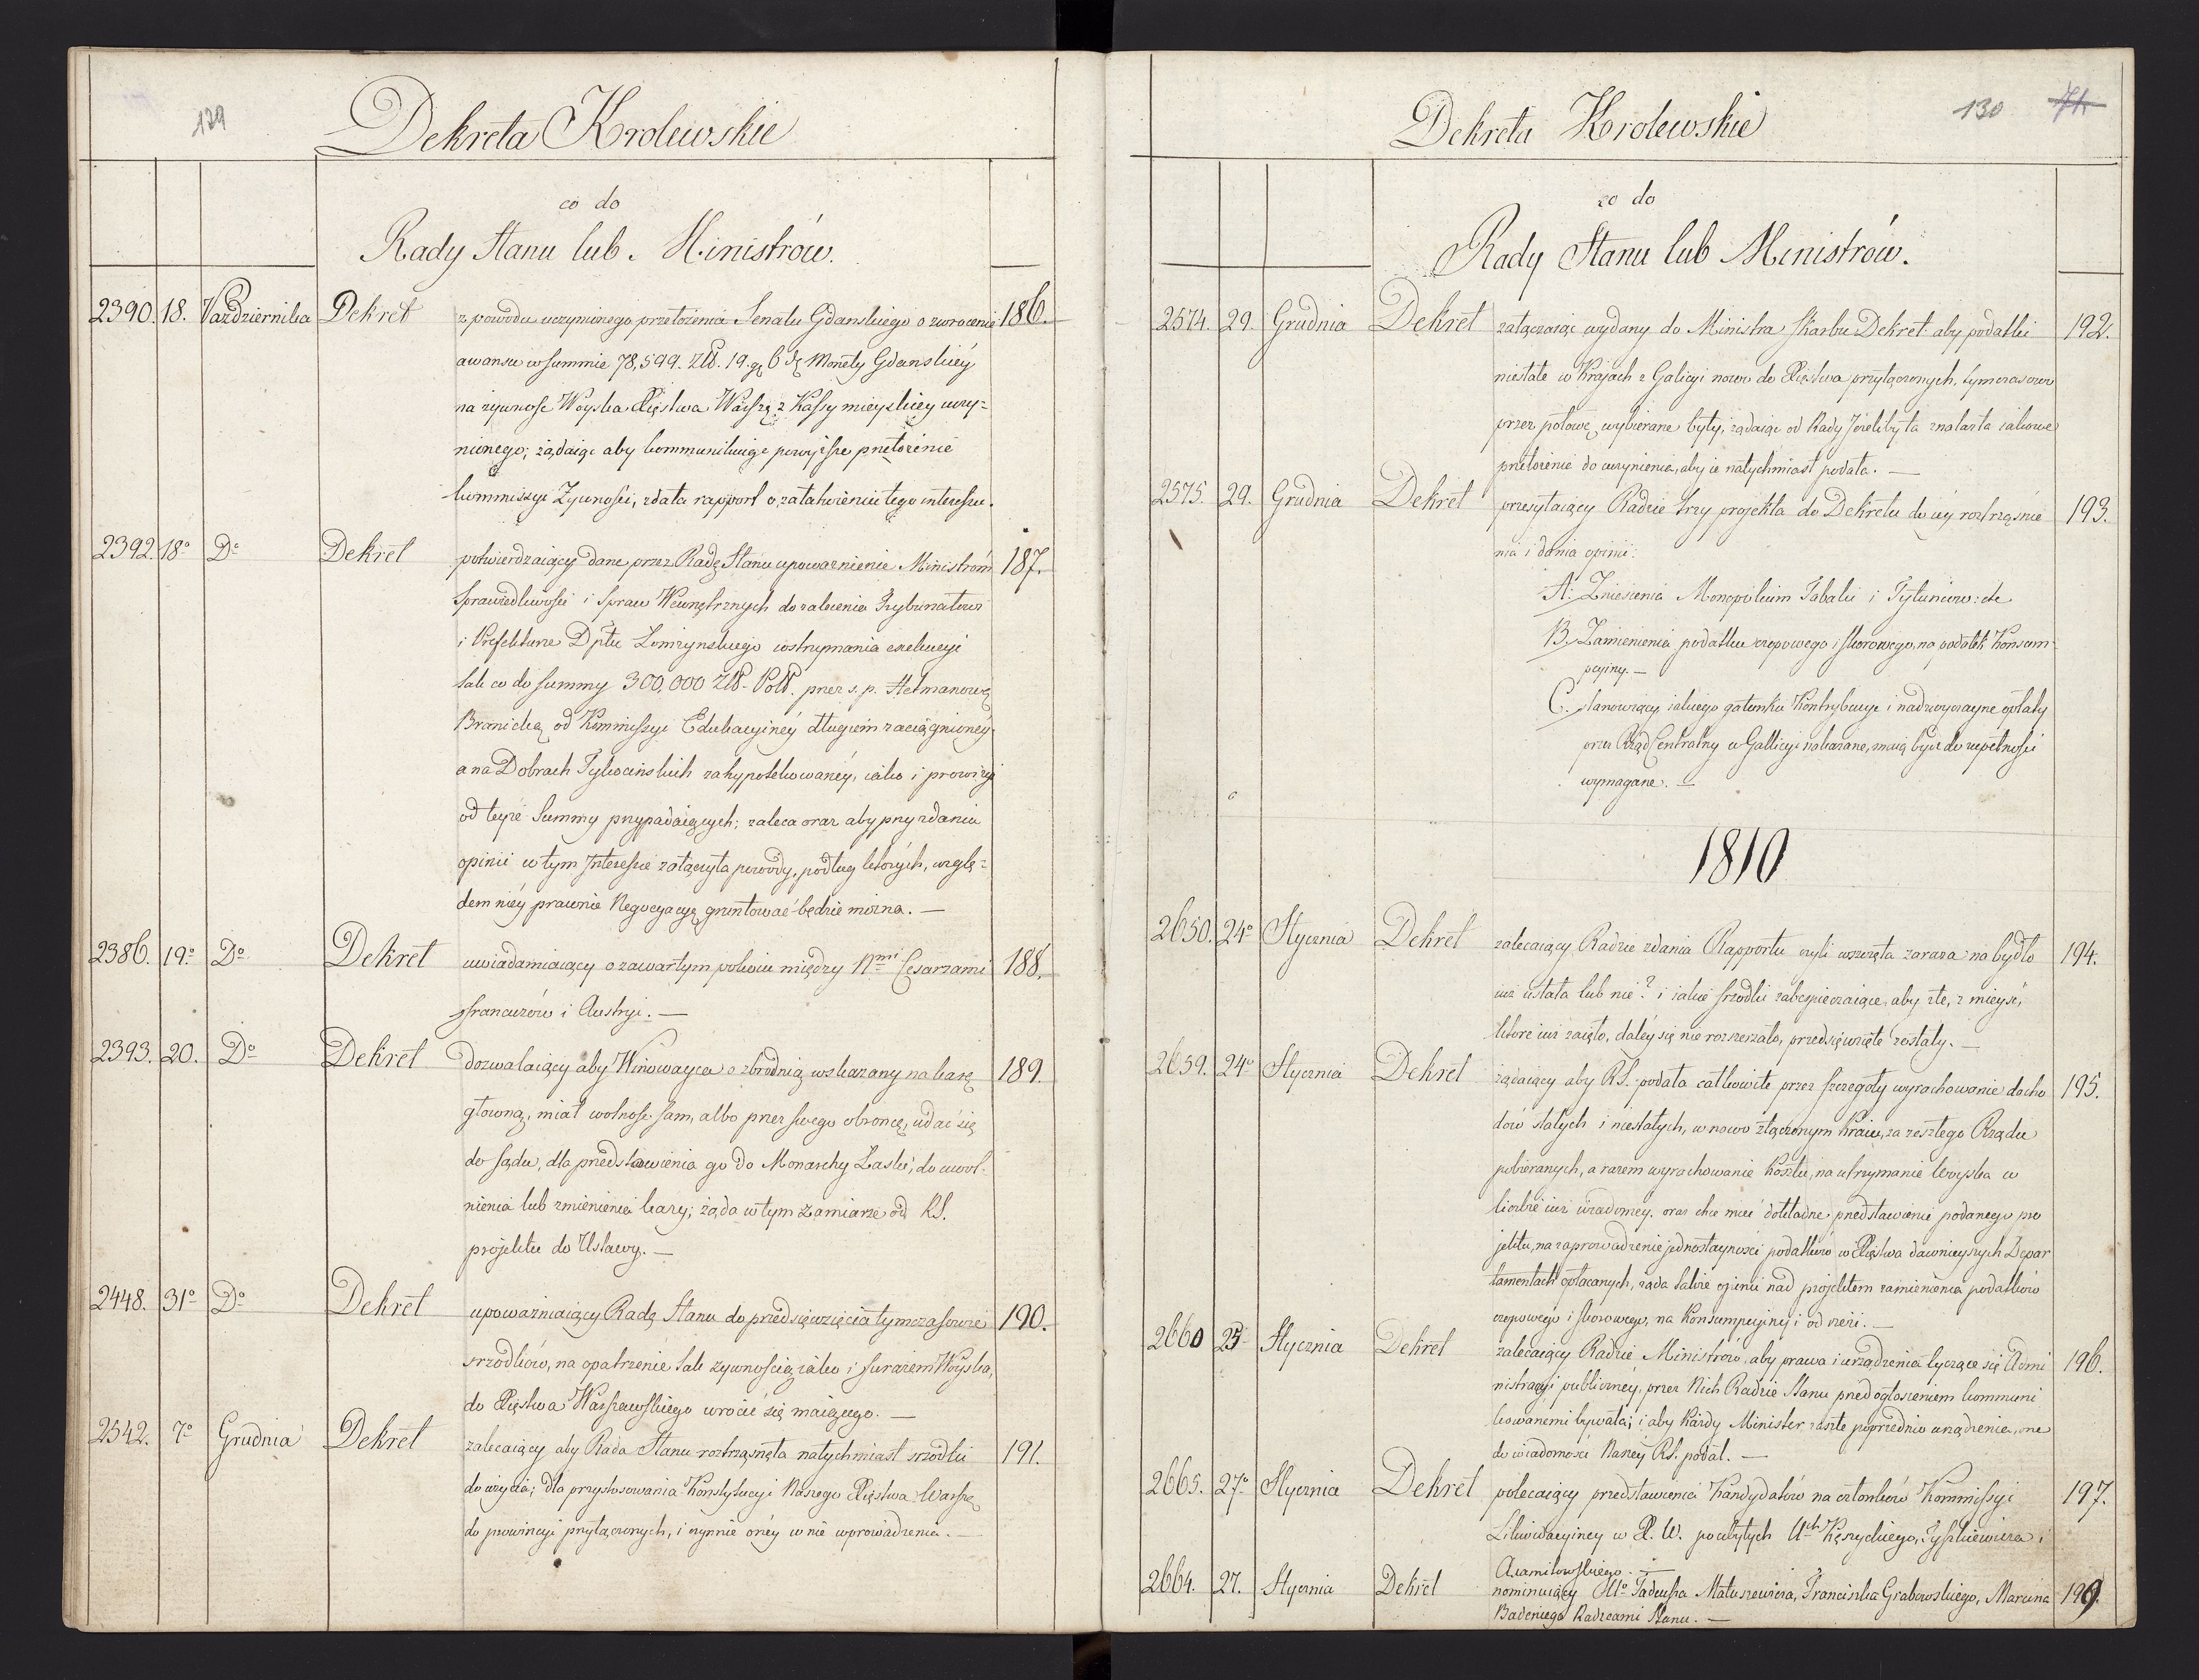 129
Dekreta Krolewskie
co do
Rady Stanu lub Ministrów.
2390. 18. Października Dekret z powodu uczynionego przełożenia Senatu Gdanskiego o zwrocenie 186.
awansu w summie 78,599. Złł. 19. gr 6 Monety Gdanskiéy
na żywnosc Woyska Xięstwa Warszą z Kassy mieyskiey uczy=
nionego; żądaiąc aby kommunikuiąc powyższe przełożenie
kommissyi Żywności, zdała rapport o załatwieniu tego interessu.
2392. 18° D° Dekret potwierdzaiący dane przez Radę Stanu upoważnienie Ministróm 187.
Sprawiedliwości i Spraw Wewnętrznych do zalecenia Trybunałowi
i Prefekturze Dpttu Łomżynskiego wstrzymania exekucyi
tak co do summy 300,000 Złł. Poll. przez s. p. Hetmanową
Branicką od Kommissyi Edukacyinéy długiem zaciągnionéy,
a na Dobrach Tykocińskich zahypotekowanéy, iako i prowizyi
od teyże Summy przypadaiących; zaleca oraz aby przy zdaniu
opinii w tym Interessie załączyła powody, podług których, wzglę=
dem niéy prawnie Negocyacyę gruntować będzie można. —
2386. 19° D° Dekret uwiadamiaiący o zawartym pokoiu między Nmi Cesarzami 188.
francuzów i Austryi. —
2393. 20. D° Dekret dozwalaiący aby Winowayca o zbrodnią wskazany na karę 189.
głowną, miał wolnosc sam, albo przez swego obroncę, udać się
do sądu, dla przedstawienia go do Monarchy Łaski, do uwol-
nienia lub zmienienia kary; żąda w tym zamiarze od RS.
projektu do Ustawy. —
2448. 31° D° Dekret upoważniaiący Radę Stanu do przedsięwzięcia tymczasowie 190.
srzodków, na opatrzenie tak żywnością iako i furażem Woyska,
do Xięstwa Warszawskiego wrocić się maiącego. —
2542. 7° Grudnia Dekret zalecaiący aby Rada Stanu roztrząsnęła natychmiast srzodki 191.
do użycia, dla przystosowania Konstytucyi Naszego Xięstwa Warszą
do prowincyi przyłączonych, i czynnie onéy w nie wprowadzenia. —
130 74
Dekreta Krolewskie
co do
Rady Stanu lub Ministrów.
2574. 29. Grudnia Dekret załączaiąc wydany do Ministra Skarbu Dekret aby podatki 192.
niestałe w Krajach z Galicyi nowo do Xięstwa przyłączonych, tymczasowo
przez połowę wybierane były, żądaiąc od Rady Jeżeliby ta znalazła iakowe
przełożenie do uczynienia, aby ie natychmiast podała. —
2575. 29. Grudnia Dekret przesyłaiący Radzie trzy projekta do Dekretu do iéy roztrząśnie 193.
nia i dania opinii:
A: Zniesienia Monopolium Tabaki i Tytuniow: de
B. Zamienienia podatku czopowego i skorowego, na podatek Konsum-
pcyiny. —
C. stanowiący iakiego gatunku Kontrybucye i nadzwyczayne opłaty
przez Rząd Centralny w Gallicyi nakazane, maią bydz do zupełności
wymagane. —
1810
2650. 24° Stycznia Dekret zalecaiący Radzie zdania Rapportu czyli wszczęta zaraza na bydło 194.
iuż ustała lub nie? i iakie srzodki zabezpieczaiące, aby złe, z mieysc,
które iuż zaięło, daléy się nie rozszerzało, przedsięwzięte zostały. —
2659. 24° Stycznia Dekret żądaiący aby RS. podała całkowite przez szczegoły wyrachowanie docho 195.
dów stałych i niestałych, w nowo złączonym Kraiu, za zeszłego Rządu
pobieranych, a razem wyrachowanie Kosztu, na utrzymanie Woyska w
liczbie iuż wiadomey. oraz chce mieć dokładne przedstawienie podanego pro
jektu, na zaprowadzenie jednostayności podatków w Xięstwa dawnieyszych Depar
tamentach opłacanych, żąda także opinii nad projektem zamienienia podatków
czopowego i skorowego, na Konsumpcyiny i od rzezi. —
2660 25 Stycznia Dekret zalecaiący Radzie Ministrów, aby prawa i urządzenia tyczące się Admi 196.
nistracyi publiczney, przez Nich Radzie Stanu przed ogłoszeniem kommuni
kowanemi bywały; i aby Każdy Minister zaszłe poprzednio urządzenia, one
do wiadomości Naszéy RS. podał. —
2665. 27° Stycznia Dekret polecaiący przedstawienia Kandydatów na członków Kommissyi 197.
Likwidacyiney w X. W. po ubyłych Uch Kęszyckiego, Tyszkiewicza i
Acamilowskiego. —
2664. 27. Stycznia Dekret nominuiący U° Tadeusza Matuszewicza, Franciszka Grabowskiego, Marcina 199.
Badeniego Radzcami Stanu. —